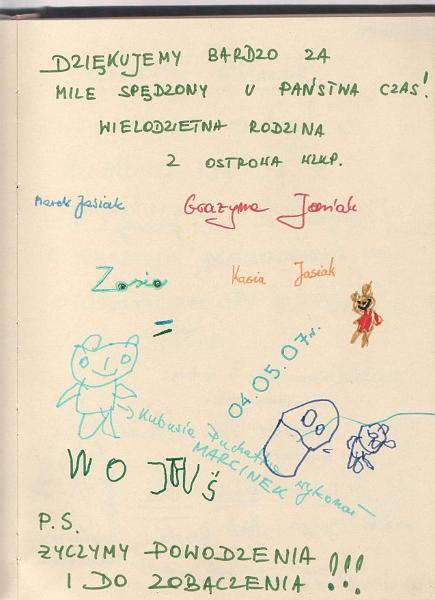 DZIĘKUJEMY BARDZO ZA
MILE SPĘDZONY U PAŃSTWA CZAS!
WIELODZIETNA RODZINA
Z OSTROWA WLKP.
Marek Jasiak
Grażyna Jasiak
Zosia
Kasia Jasiak
04.05.07r.
Kubusia Puchatka wykonał
MARCINEK
WOJTUŚ
P.S.
ŻYCZYMY POWODZENIA
I DO ZOBACZENIA !!!